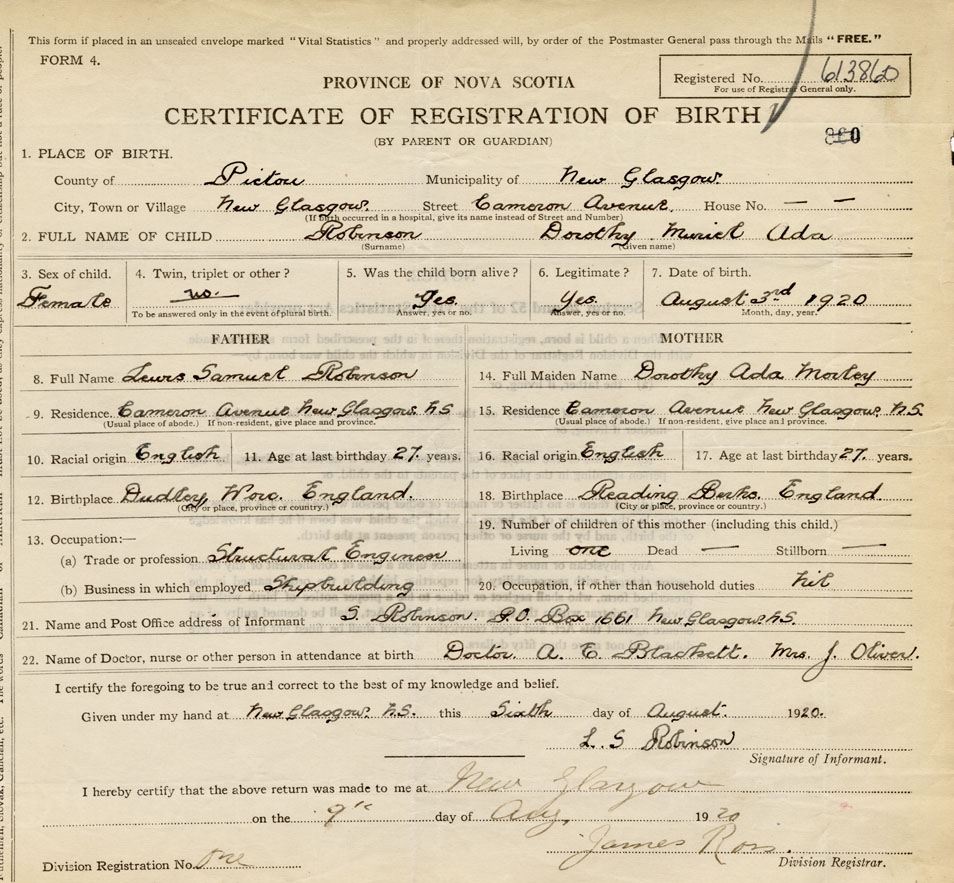 This form if placed in an unsealed envelope marked "Vital Statistics" and properly addressed will, by order of the Postmaster General pass through the Mails "FREE."
FORM 4.
Registered No. 613860
For use of Registrar General only.
PROVINCE OF NOVA SCOTIA
CERTIFICATE OF REGISTRATION OF BIRTH
(BY PARENT OR GUARDIAN)
1. PLACE OF BIRTH.
County of Pictou Municipality of New Glasgow.
City, Town or Village New Glasgow. Street Cameron Avenue. House No. — —
(If birth occurred in a hospital, give its name instead of Street and Number)
2. FULL NAME OF CHILD Robinson Dorothy Muriel Ada
(Surname) (Given name)
3. Sex of child. 4. Twin, triplet or other? 5. Was the child born alive? 6. Legitimate? 7. Date of birth.
Female no. Yes. Yes. August 3rd 1920
To be answered only in the event of plural birth. Answer, yes or no. Answer, yes or no. Month, day, year.
FATHER MOTHER
8. Full Name Lewis Samuel Robinson 14. Full Maiden Name Dorothy Ada Morley
9. Residence. Cameron Avenue New Glasgow. N.S. 15. Residence Cameron Avenue New Glasgow. N.S.
(Usual place of abode.) If non-resident, give place and province. (Usual place of abode.) If non-resident, give place and province.
10. Racial origin English 11. Age at last birthday 27. years. 16. Racial origin English 17. Age at last birthday 27. years.
12. Birthplace Dudley, Worc. England. 18. Birthplace Reading Berks. England
(City or place, province or country.) (City or place, province or country.)
13. Occupation:— 19. Number of children of this mother (including this child.)
(a) Trade or profession Structural Engineer Living one Dead — Stillborn —
(b) Business in which employed Shipbuilding 20. Occupation, if other than household duties nil
21. Name and Post Office address of Informant S. Robinson. P.O. Box 1661 New Glasgow. N.S.
22. Name of Doctor, nurse or other person in attendance at birth Doctor. A. E. Blackett. Mrs. J. Oliver.
I certify the foregoing to be true and correct to the best of my knowledge and belief.
Given under my hand at New Glasgow. N.S. this Sixth day of August. 1920.
L. S Robinson
Signature of Informant.
I hereby certify that the above return was made to me at New Glasgow
on the 9" day of Aug, 1920
James Ross.
Division Registration No. One Division Registrar.